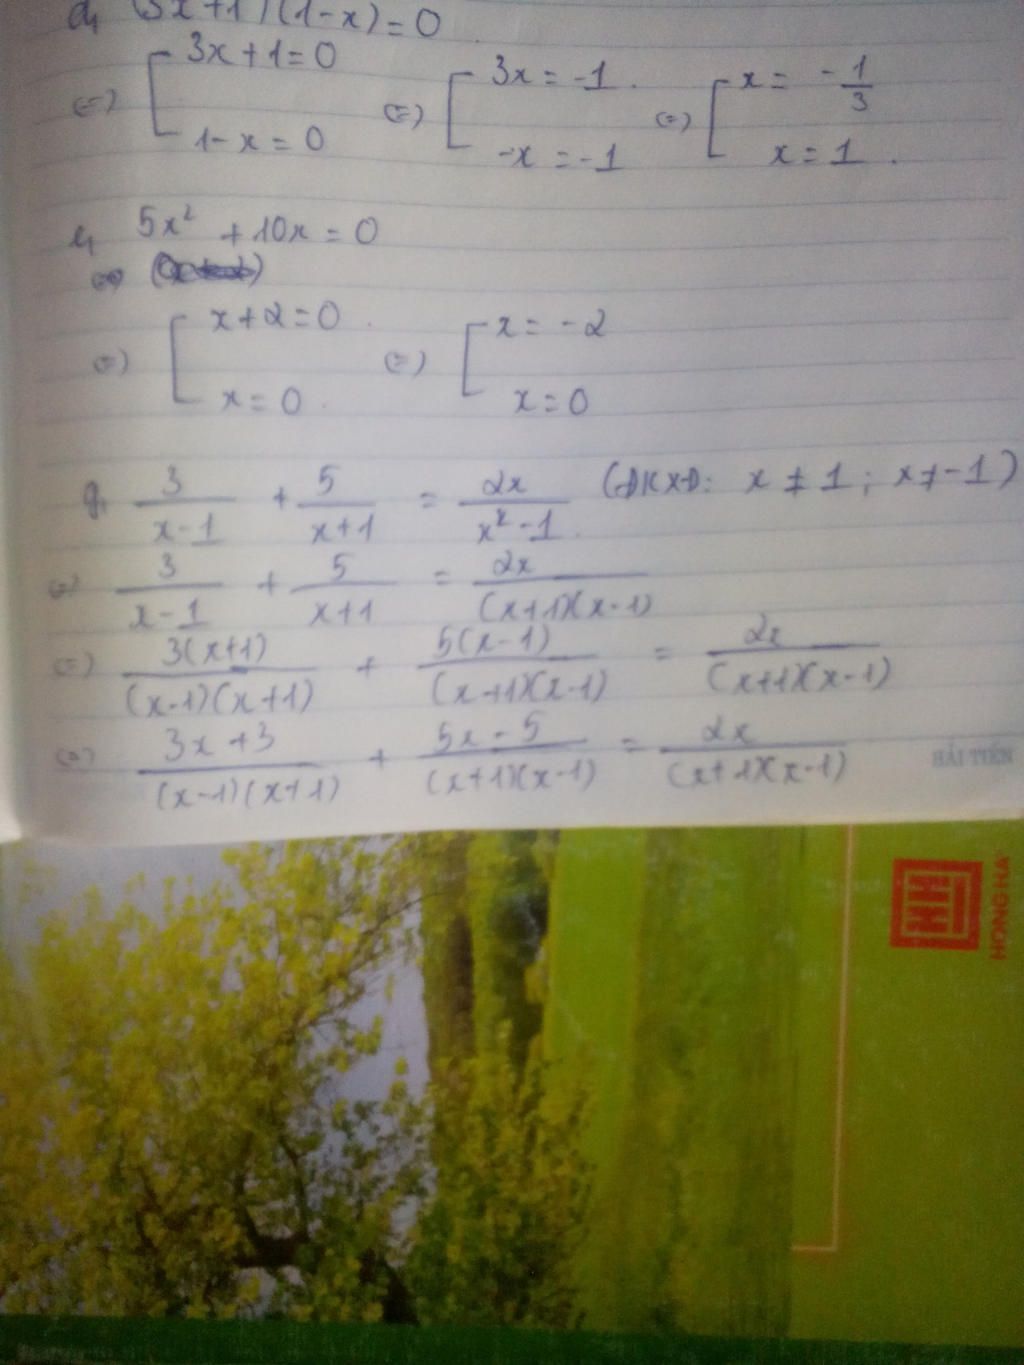 d, (3x+1)(1-x)=0
(=) [ 3x+1=0 (=) [ 3x=-1. (=) [ x= -1/3
1-x=0 -x=-1 x=1.
5x² +10x=0
(=)
(=) [ x+2=0. (=) [ x=-2
x=0. x=0
g, 3/(x-1) + 5/(x+1) = 2x/(x²-1). (ĐKXĐ: x≠1; x≠-1)
(=) 3/(x-1) + 5/(x+1) = 2x/((x+1)(x-1))
(=) 3(x+1)/((x-1)(x+1)) + 5(x-1)/((x+1)(x-1)) = 2x/((x+1)(x-1))
(=) (3x+3)/((x-1)(x+1)) + (5x-5)/((x+1)(x-1)) = 2x/((x+1)(x-1))
HẢI TIẾN
HONG HA